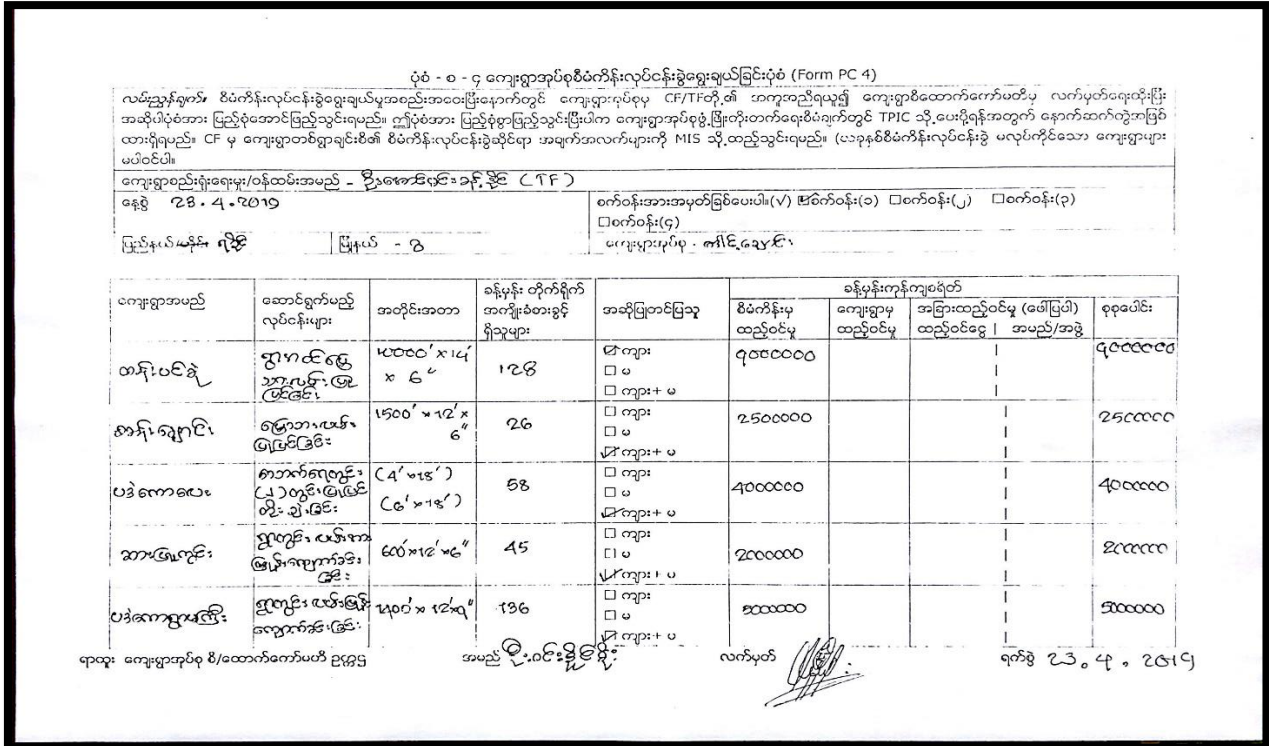 ပုံစံ - စ - ၄ ကျေးရွာအုပ်စုစီမံကိန်းလုပ်ငန်းခွဲရွေးချယ်ခြင်းပုံစံ (Form PC 4)
လမ်းညွှန်ချက်။ စီမံကိန်းလုပ်ငန်းခွဲရွေးချယ်မှုအစည်းအဝေးပြီးနောက်တွင် ကျေးရွာအုပ်စုမှ CF/TFတို့၏ အကူအညီရယူ၍ ကျေးရွာစီထောက်ကော်မတီမှ လက်မှတ်ရေးထိုးပြီး
အဆိုပါပုံစံအား ပြည့်စုံအောင်ဖြည့်သွင်းရမည်။ ဤပုံစံအား ပြည့်စုံစွာဖြည့်သွင်းပြီးပါက ကျေးရွာအုပ်စုဖွံ့ဖြိုးတိုးတက်ရေးစီမံချက်တွင် TPIC သို့ပေးပို့ရန်အတွက် နောက်ဆက်တွဲအဖြစ်
ထားရှိရမည်။ CF မှ ကျေးရွာတစ်ရွာချင်းစီ၏ စီမံကိန်းလုပ်ငန်းခွဲဆိုင်ရာ အချက်အလက်များကို MIS သို့ထည့်သွင်းရမည်။ (ယခုနှစ်စီမံကိန်းလုပ်ငန်းခွဲ မလုပ်ကိုင်သော ကျေးရွာများ
မပါဝင်ပါ။
ကျေးရွာစည်းရုံးရေးမှူး/ဝန်ထမ်းအမည် - (TF)
နေ့စွဲ 23.4.2019 စက်ဝန်းအားအမှတ်ခြစ်ပေးပါ။(√) ☑စက်ဝန်း(၁) ☐စက်ဝန်း(၂) ☐စက်ဝန်း(၃)
☐စက်ဝန်း(၄)
ပြည်နယ် ရခိုင် မြို့နယ် - ဂွ ကျေးရွာအုပ်စု -
ကျေးရွာအမည် ဆောင်ရွက်မည့် လုပ်ငန်းများ အတိုင်းအတာ ခန့်မှန်း တိုက်ရိုက် အကျိုးခံစားခွင့် ရှိသူများ အဆိုပြုတင်ပြသူ ခန့်မှန်းကုန်ကျစရိတ်
စီမံကိန်းမှ ထည့်ဝင်မှု ကျေးရွာမှ ထည့်ဝင်မှု အခြားထည့်ဝင်မှု (ဖော်ပြပါ) ထည့်ဝင်ငွေ | အမည်/အဖွဲ့ စုစုပေါင်း
ထန်းပင်ခွဲ 128 ☑ ကျား 9000000 9000000
☐ မ
☐ ကျား+ မ
1500' × 12' × 6" 26 ☐ ကျား 2500000 2500000
☐ မ
☑ ကျား+ မ
ပဒဲကောလေး (4' × 18') 58 ☐ ကျား 4000000 4000000
(6' × 18') ☐ မ
☑ ကျား+ မ
600' × 12' × 6" 45 ☐ ကျား 2000000 2000000
☐ မ
☑ ကျား+ မ
ပဒဲကောရွာမကြီး 136 ☐ ကျား 5000000 5000000
☐ မ
☑ ကျား+ မ
ရာထူး ကျေးရွာအုပ်စု စီ/ထောက်ကော်မတီ ဥက္ကဌ အမည် လက်မှတ် ရက်စွဲ 23.4.2019